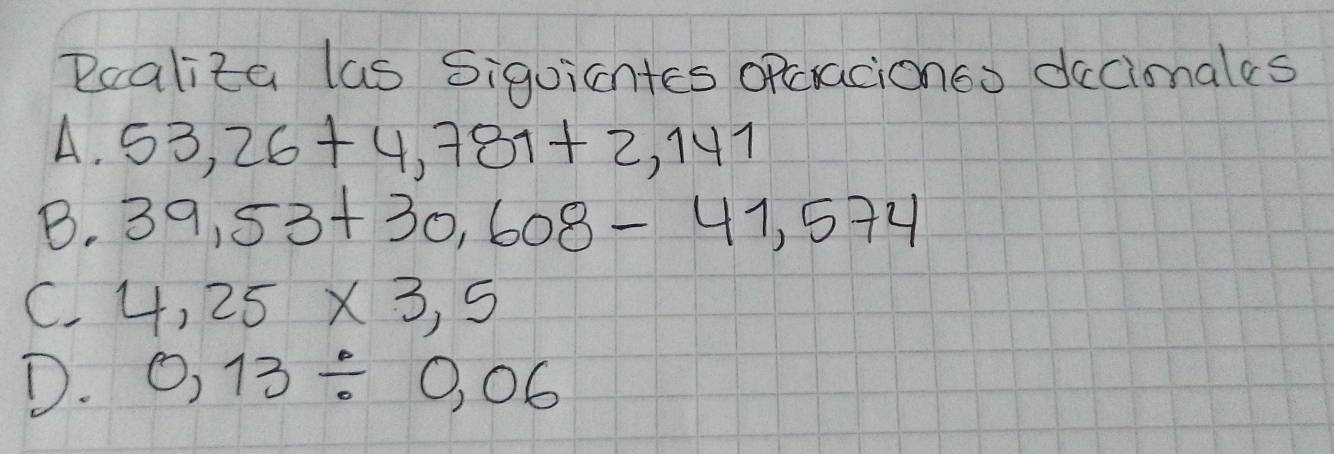 Realiza las siguientes operaciones decimales
A. 53,26 + 4,781 + 2,141
B. 39,53 + 30,608 - 41,574
C. 4,25 x 3,5
D. 0,13 ÷ 0,06